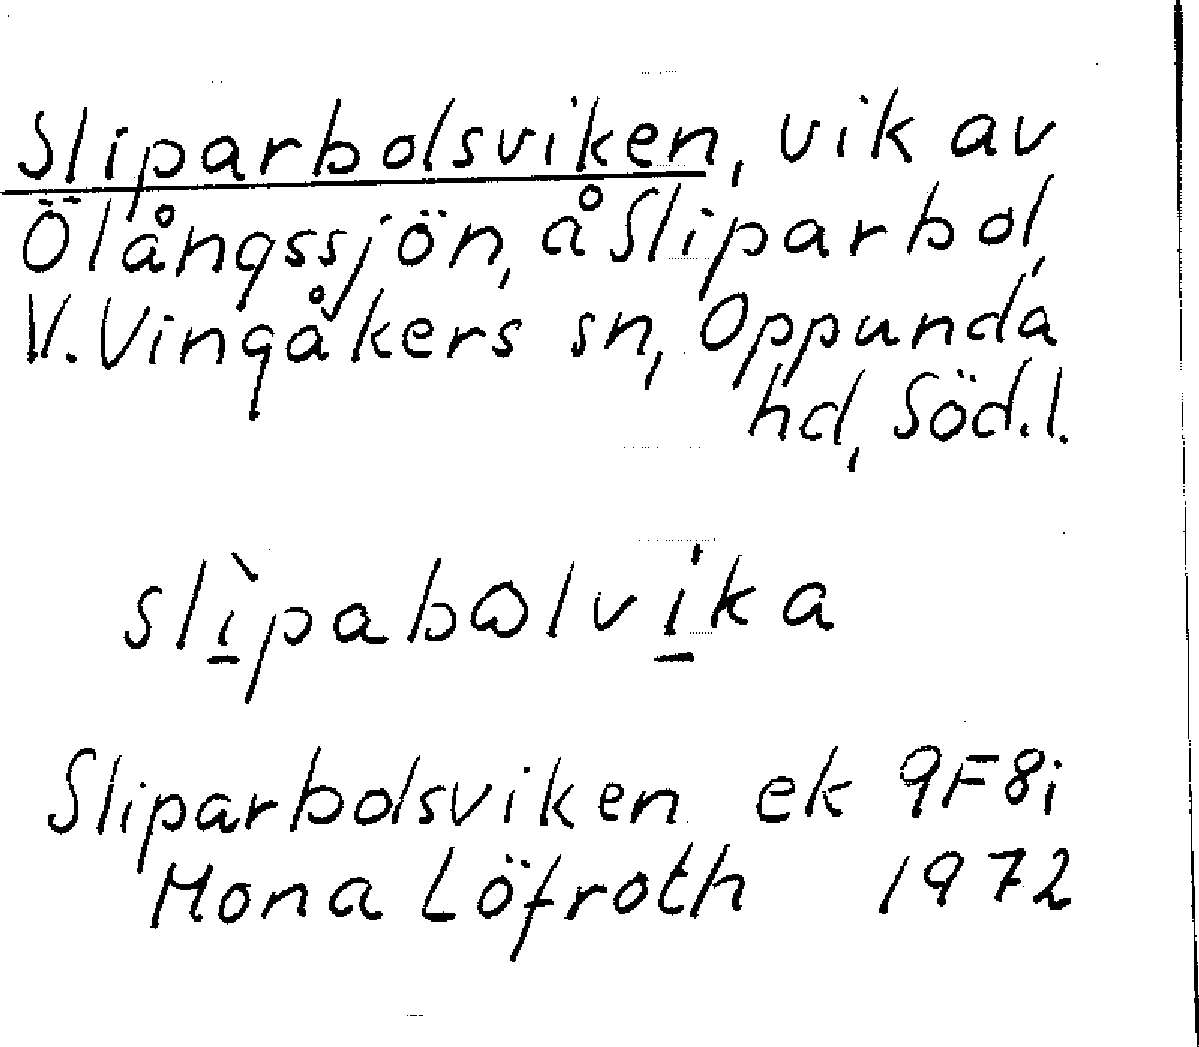 Sliparbolsviken, vik av
Ölångssjön, å Sliparbol,
V. Vingåkers sn, Oppunda
hd, Söd.l.
slìpabωlvíka
Sliparbolsviken ek 9F8i
Mona Löfroth 1972